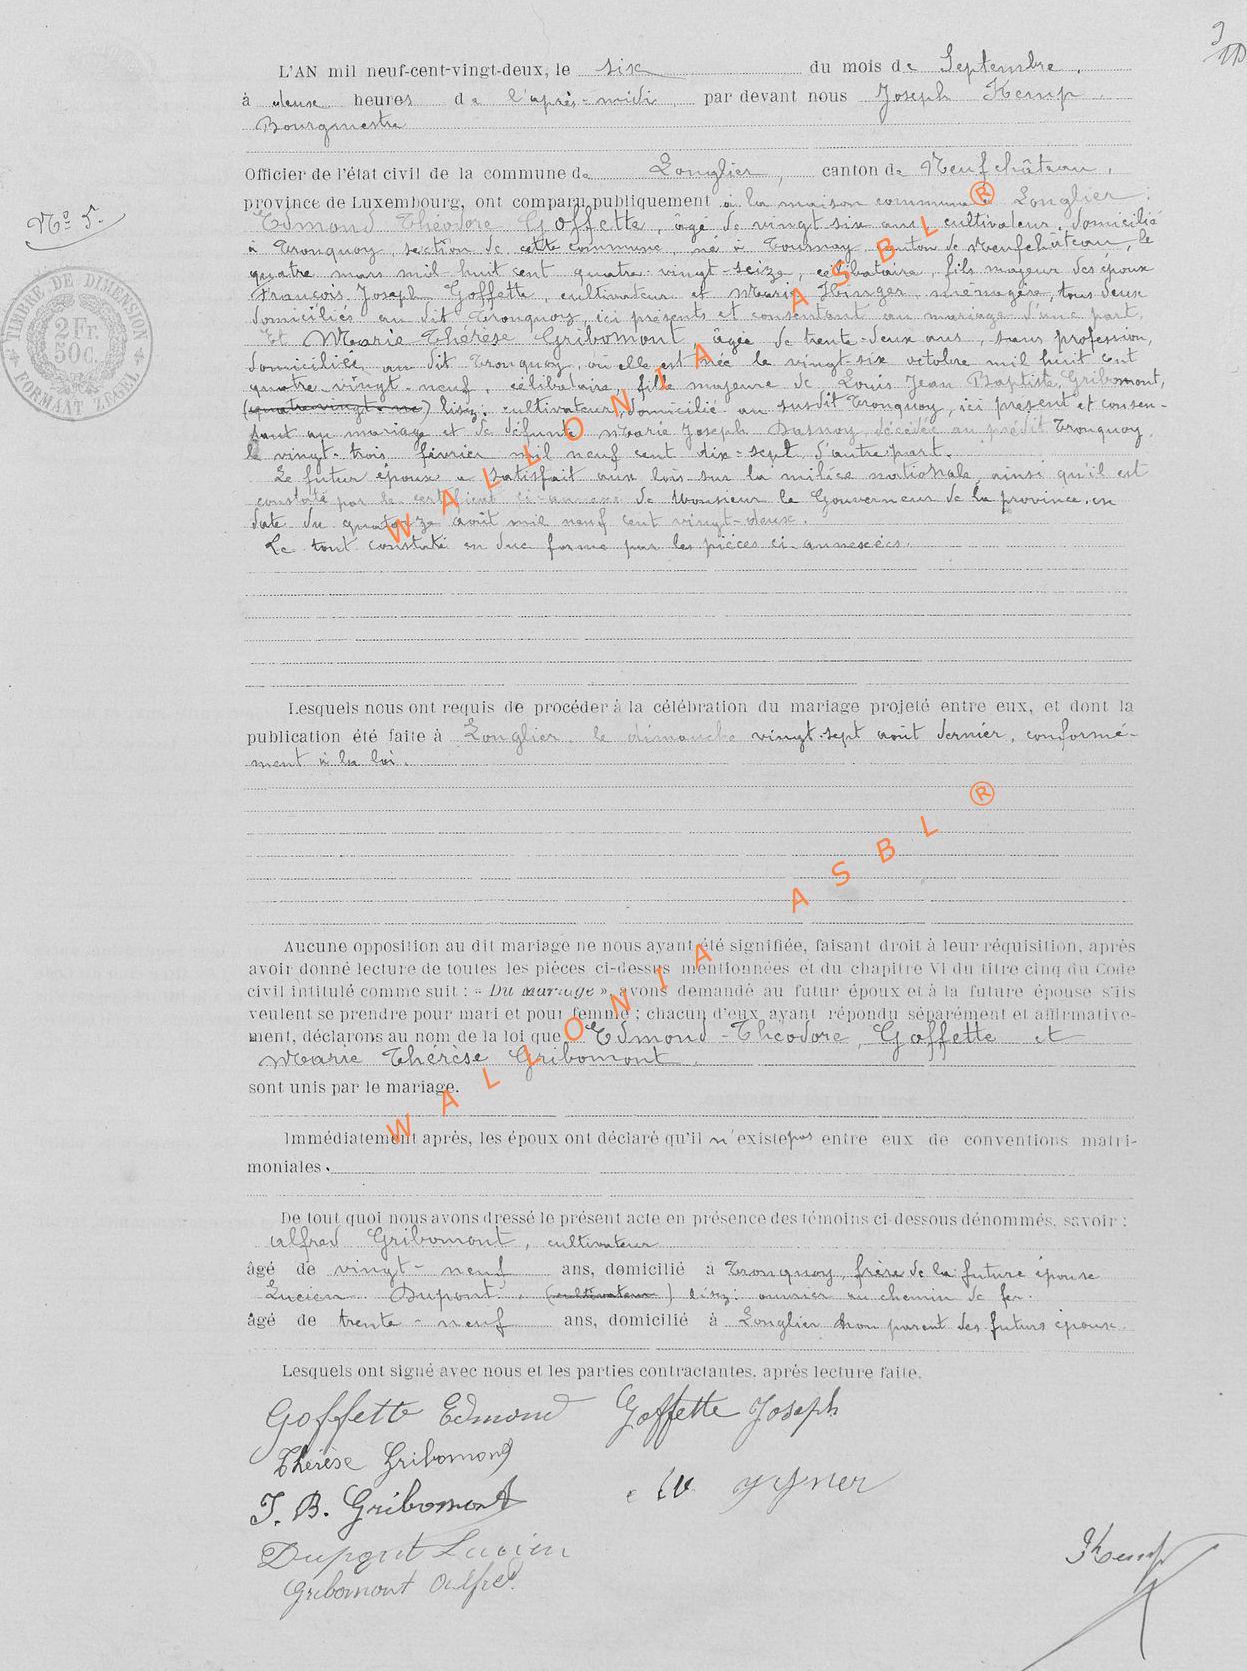 L'AN mil neuf-cent-vingt-deux, le six du mois de Septembre,
à deux heures de l'après-midi par devant nous Joseph Kemp,
Bourgmestre
Officier de l'état civil de la commune de Longlier, canton de Neufchâteau,
province de Luxembourg, ont comparu publiquement à la maison communale Longlier :
Nº 5.
Edmond Théodore Goffette, âgé de vingt six ans, cultivateur, domicilié
à Tronquoy, section de cette commune, né à Tournay canton de Neufchâteau, le
quatre mars mil huit cent quatre-vingt-seize, célibataire, fils majeur des époux
François Joseph Goffette, cultivateur et Marie ménagère, tous deux
domiciliés au dit Tronquoy, ici présents et consentant au mariage d'une part,
Et Marie Thérèse Gribomont, âgée de trente-deux ans, sans profession,
domiciliée au dit Tronquoy, où elle est née le vingt-six octobre mil huit cent
quatre-vingt-neuf, célibataire, fille majeure de Louis Jean Baptiste Gribomont,
(quatre vingt-ne) lisez: cultivateur, domicilié au susdit Tronquoy, ici présent et consen-
tant au mariage et de défunte Marie Joseph Dasnoy, décédée au prédit Tronquoy,
le vingt-trois février mil neuf cent dix-sept d'autre part.
Le futur époux a satisfait aux lois sur la milice nationale, ainsi qu'il est
constaté par le certificat ci-annexé de Monsieur le Gouverneur de la province, en
date du quatorze août mil neuf cent vingt-deux.
Le tout constaté en due forme par les pièces ci-annexées.
TIMBRE DE DIMENSION
2 Fr.
50 C.
FORMAAT ZEGEL
WALLONIA ASBL ®
Lesquels nous ont requis de procéder à la célébration du mariage projeté entre eux, et dont la
publication été faite à Longlier, le dimanche vingt-sept août dernier, conformé-
ment à la loi.
WALLONIA ASBL ®
Aucune opposition au dit mariage ne nous ayant été signifiée, faisant droit à leur réquisition, après
avoir donné lecture de toutes les pièces ci-dessus mentionnées et du chapitre VI du titre cinq du Code
civil intitulé comme suit : « Du mariage », avons demandé au futur époux et à la future épouse s'ils
veulent se prendre pour mari et pour femme ; chacun d'eux ayant répondu séparément et affirmative-
ment, déclarons au nom de la loi que Edmond-Théodore Goffette et
Marie Thérèse Gribomont
sont unis par le mariage.
Immédiatement après, les époux ont déclaré qu'il n'existe pas entre eux de conventions matri-
moniales.
De tout quoi nous avons dressé le présent acte en présence des témoins ci-dessous dénommés, savoir :
Alfred Gribomont, cultivateur
âgé de vingt-neuf ans, domicilié à Tronquoy, frère de la future épouse
Lucien Dupont, (cultivateur) lisez: ouvrier au chemin de fer.
âgé de trente-neuf ans, domicilié à Longlier non parent des futurs époux.
Lesquels ont signé avec nous et les parties contractantes, après lecture faite.
Goffette Edmond Goffette Joseph
Thérèse Gribomont
J. B. Gribomont
Dupont Lucien
Gribomont Alfred.
Kemp